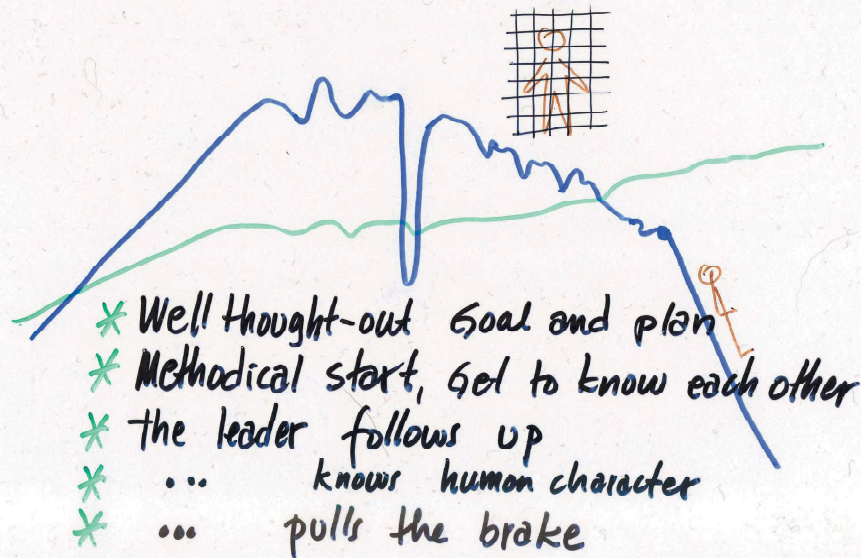 * Well thought-out Goal and plan
* Methodical start, Get to know each other
* the leader follows up
* ... knows human character
* ... pulls the brake